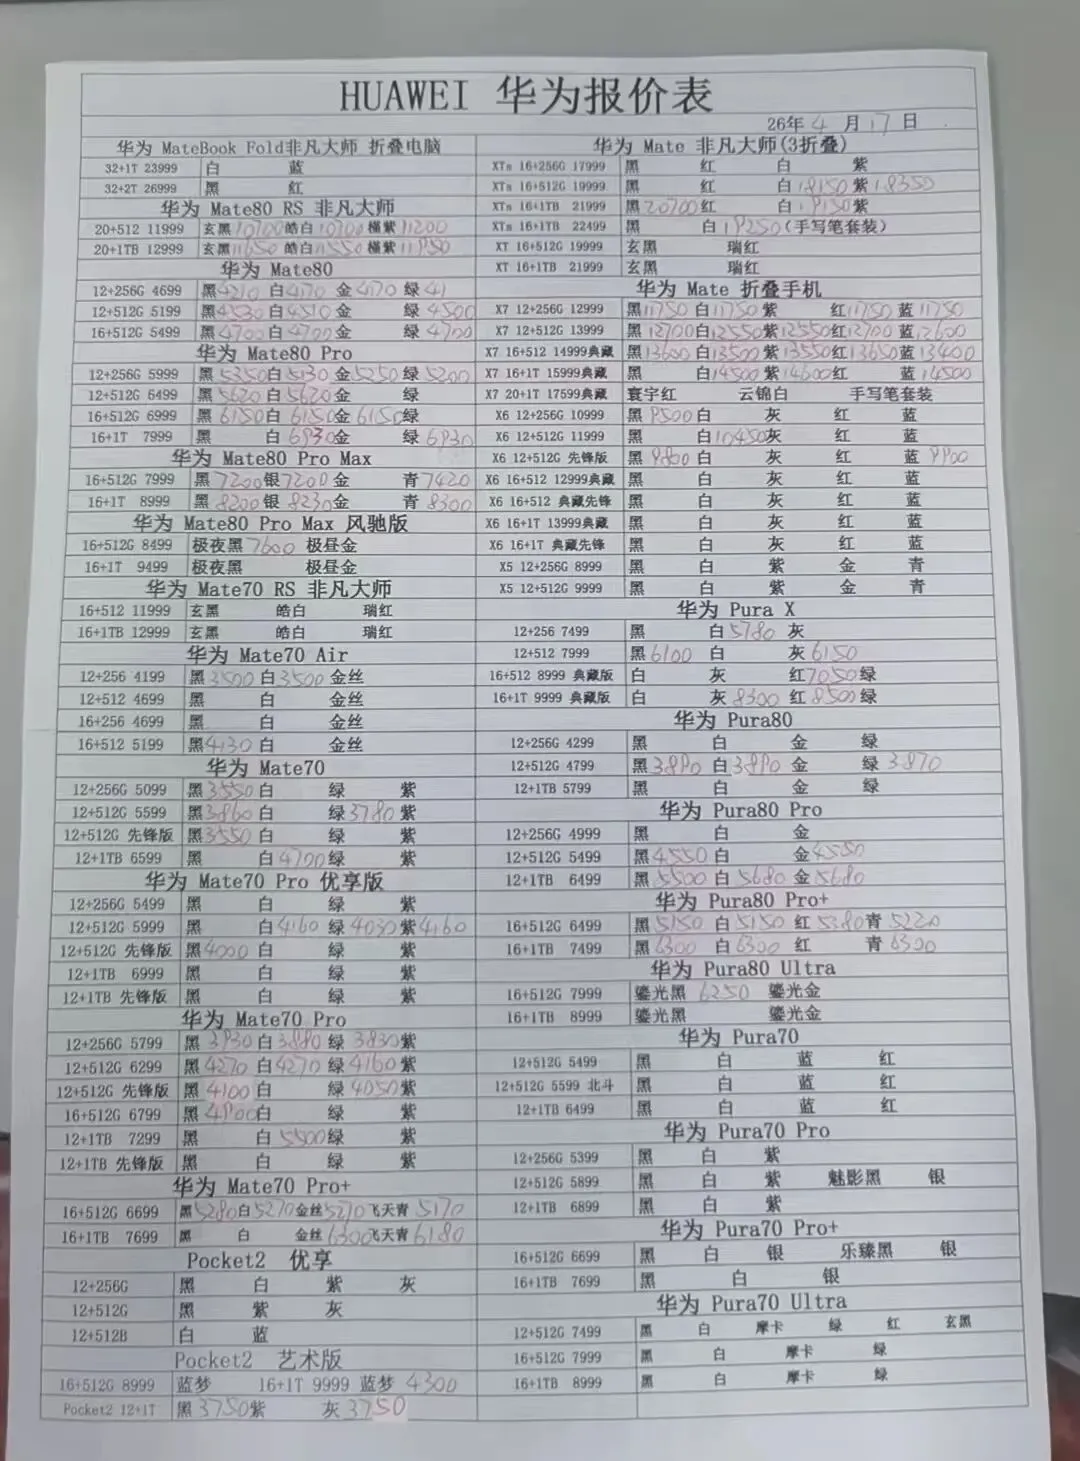 HUAWEI 华为报价表
26年 4 月 17 日
华为 MateBook Fold非凡大师 折叠电脑
32+1T 23999 白 蓝
32+2T 26999 黑 红
华为 Mate80 RS 非凡大师
20+512 11999 玄黑10700 皓白10700 槿紫11200
20+1TB 12999 玄黑11650 皓白11550 槿紫11950
华为 Mate80
12+256G 4699 黑4210 白4170 金4170 绿41
12+512G 5199 黑4530 白4510 金 绿4500
16+512G 5499 黑4700 白4700 金 绿4700
华为 Mate80 Pro
12+256G 5999 黑5250 白5130 金5250 绿5200
12+512G 6499 黑5620 白5620 金 绿
16+512G 6999 黑6150 白6150 金6150 绿
16+1T 7999 黑 白6930 金 绿6930
华为 Mate80 Pro Max
16+512G 7999 黑7200 银7200 金 青7420
16+1T 8999 黑8200 银8230 金 青8300
华为 Mate80 Pro Max 风驰版
16+512G 8499 极夜黑7600 极昼金
16+1T 9499 极夜黑 极昼金
华为 Mate70 RS 非凡大师
16+512 11999 玄黑 皓白 瑞红
16+1TB 12999 玄黑 皓白 瑞红
华为 Mate70 Air
12+256 4199 黑3500 白3500 金丝
12+512 4699 黑 白 金丝
16+256 4699 黑 白 金丝
16+512 5199 黑4130 白 金丝
华为 Mate70
12+256G 5099 黑3550 白 绿 紫
12+512G 5599 黑3860 白 绿3780 紫
12+512G 先锋版 黑3550 白 绿 紫
12+1TB 6599 黑 白4700 绿 紫
华为 Mate70 Pro 优享版
12+256G 5499 黑 白 绿 紫
12+512G 5999 黑 白4160 绿4030 紫4160
12+512G 先锋版 黑4000 白 绿 紫
12+1TB 6999 黑 白 绿 紫
12+1TB 先锋版 黑 白 绿 紫
华为 Mate70 Pro
12+256G 5799 黑3930 白3880 绿3830 紫
12+512G 6299 黑4270 白4270 绿4160 紫
12+512G 先锋版 黑4100 白 绿4050 紫
16+512G 6799 黑4900 白 绿 紫
12+1TB 7299 黑 白5500 绿 紫
12+1TB 先锋版 黑 白 绿 紫
华为 Mate70 Pro+
16+512G 6699 黑5280 白5270 金丝5270 飞天青 5170
16+1TB 7699 黑 白 金丝6300 飞天青 6180
Pocket2 优享
12+256G 黑 白 紫 灰
12+512G 黑 紫 灰
12+512B 白 蓝
Pocket2 艺术版
16+512G 8999 蓝梦 16+1T 9999 蓝梦 4300
Pocket2 12+1T 黑3750 紫 灰3750
华为 Mate 非凡大师(3折叠)
XTs 16+256G 17999 黑 红 白 紫
XTs 16+512G 19999 黑 红 白18150 紫18350
XTs 16+1TB 21999 黑20700 红 白19150 紫
XTs 16+1TB 22499 黑 白19250 (手写笔套装)
XT 16+512G 19999 玄黑 瑞红
XT 16+1TB 21999 玄黑 瑞红
华为 Mate 折叠手机
X7 12+256G 12999 黑11750 白11750 紫 红11750 蓝11750
X7 12+512G 13999 黑12700 白12550 紫12550 红12700 蓝12600
X7 16+512 14999典藏 黑13600 白13500 紫13550 红13650 蓝13400
X7 16+1T 15999典藏 黑 白14500 紫14600 红 蓝14500
X7 20+1T 17599典藏 寰宇红 云锦白 手写笔套装
X6 12+256G 10999 黑9500 白 灰 红 蓝
X6 12+512G 11999 黑 白10450 灰 红 蓝
X6 12+512G 先锋版 黑9800 白 灰 红 蓝9900
X6 16+512 12999典藏 黑 白 灰 红 蓝
X6 16+512 典藏先锋 黑 白 灰 红 蓝
X6 16+1T 13999典藏 黑 白 灰 红 蓝
X6 16+1T 典藏先锋 黑 白 灰 红 蓝
X5 12+256G 8999 黑 白 紫 金 青
X5 12+512G 9999 黑 白 紫 金 青
华为 Pura X
12+256 7499 黑 白5780 灰
12+512 7999 黑6100 白 灰6150
16+512 8999 典藏版 白 灰 红7050 绿
16+1T 9999 典藏版 白 灰8300 红8500 绿
华为 Pura80
12+256G 4299 黑 白 金 绿
12+512G 4799 黑3890 白3890 金 绿3870
12+1TB 5799 黑 白 金 绿
华为 Pura80 Pro
12+256G 4999 黑 白 金
12+512G 5499 黑4550 白 金4550
12+1TB 6499 黑5500 白5680 金5680
华为 Pura80 Pro+
16+512G 6499 黑5150 白5150 红5380 青5220
16+1TB 7499 黑6300 白6300 红 青6300
华为 Pura80 Ultra
16+512G 7999 鎏光黑 6250 鎏光金
16+1TB 8999 鎏光黑 鎏光金
华为 Pura70
12+512G 5499 黑 白 蓝 红
12+512G 5599 北斗 黑 白 蓝 红
12+1TB 6499 黑 白 蓝 红
华为 Pura70 Pro
12+256G 5399 黑 白 紫
12+512G 5899 黑 白 紫 魅影黑 银
12+1TB 6899 黑 白 紫
华为 Pura70 Pro+
16+512G 6699 黑 白 银 乐臻黑 银
16+1TB 7699 黑 白 银
华为 Pura70 Ultra
12+512G 7499 黑 白 摩卡 绿 红 玄黑
16+512G 7999 黑 白 摩卡 绿
16+1TB 8999 黑 白 摩卡 绿